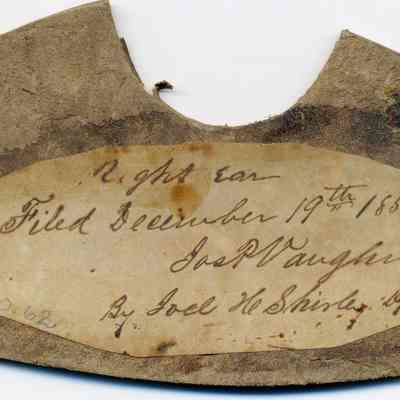 Right ear
Filed December 19th 188
Jos P Vaughn
By Joel H Shirley
62